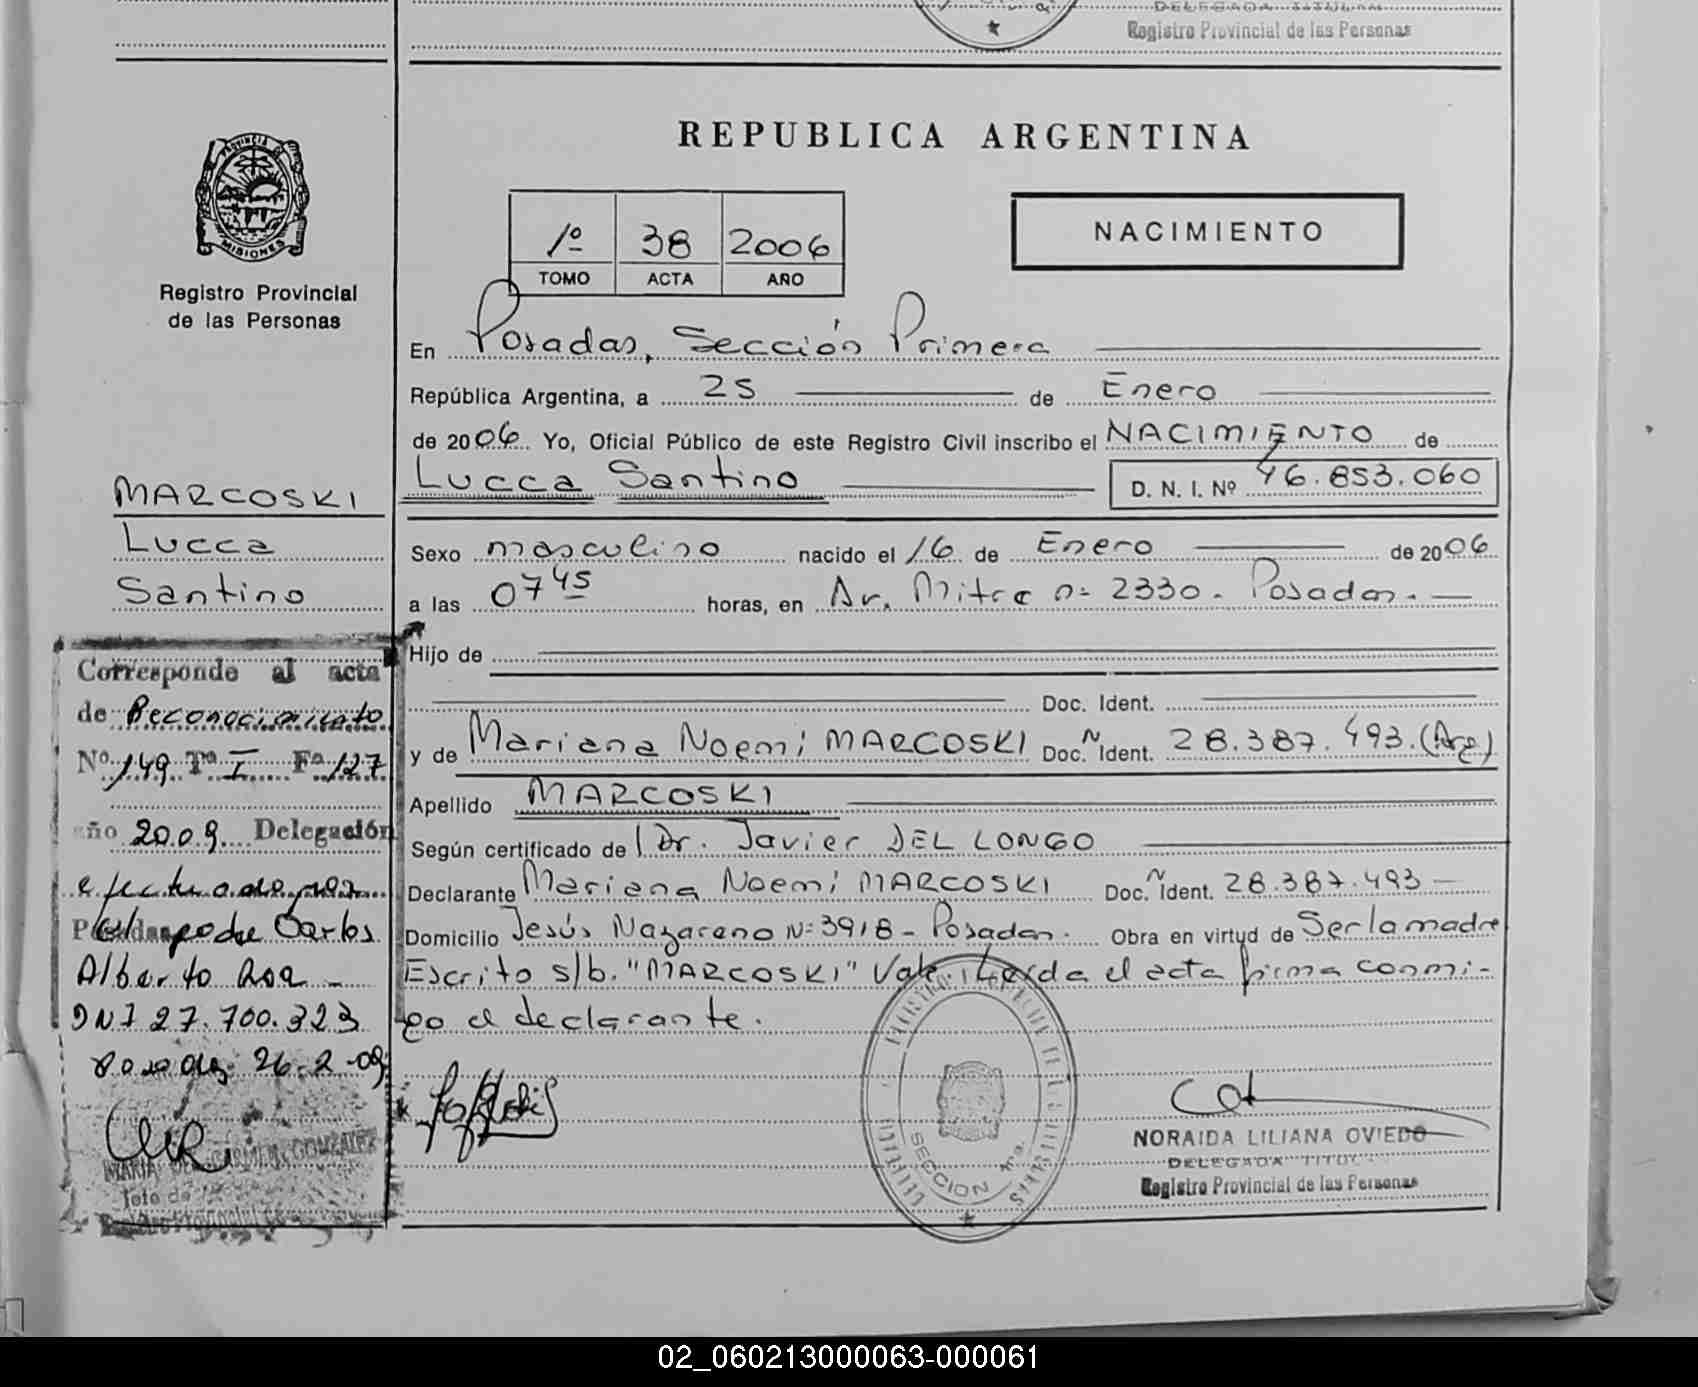 DELEGADA TITULAR
Registro Provincial de las Personas
REPUBLICA ARGENTINA
PROVINCIA DE
MISIONES
Registro Provincial
de las Personas
1º 38 2006
TOMO ACTA AÑO
NACIMIENTO
En Posadas, Sección Primera
República Argentina, a 25 de Enero
de 2006 Yo, Oficial Público de este Registro Civil inscribo el NACIMIENTO de
Lucca Santino D. N. I. Nº 46.853.060
MARCOSKI
Lucca
Santino
Sexo masculino nacido el 16 de Enero de 2006
a las 0745 horas, en Av. Mitre nº 2330. Posadas.
Hijo de
Doc. Ident.
y de Mariana Noemi MARCOSKI Doc. N Ident. 28.387.493.(Arg)
Apellido MARCOSKI
Según certificado de Dr. Javier DEL LONGO
Declarante Mariana Noemi MARCOSKI Doc. N Ident. 28.387.493
Domicilio Jesús Nazareno Nº 3918 - Posadas. Obra en virtud de Ser la madre
Escrito s/b. "MARCOSKI" Vale. Leída el acta firma conmi-
go el declarante.
Corresponde al acta
de Reconocimiento
Nº 149 Tº I Fº 127
año 2009 Delegación
efectuado por
el padre Carlos
Alberto Roa
DNI 27.700.323
Posadas 26-2-09
MARIA DEL CARMEN GONZALEZ
SECCION 1ra.
NORAIDA LILIANA OVIEDO
DELEGADA TITULAR
Registro Provincial de las Personas
02_060213000063-000061